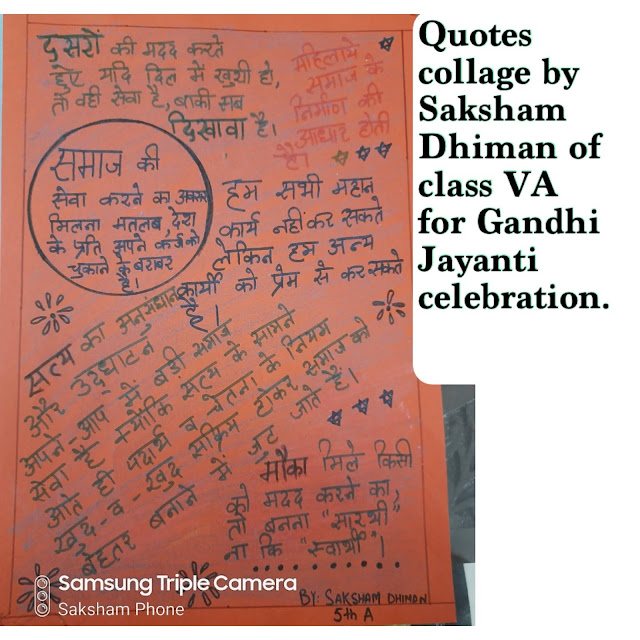 दुसरों की मदद करते
हुए यदि दिल में खुशी हो,
तो वही सेवा है, बाकी सब
दिखावा है।
महिलाये
समाज के
निर्माण की
आधार होती
है।
समाज की
सेवा करने का अवसर
मिलना मतलब, देश
के प्रति अपने कर्ज को
चुकाने के बराबर
है।
हम सभी महान
कार्य नहीं कर सकते
लेकिन हम अन्य
कार्यों को प्रेम से कर सकते
है।
सत्य का अनुसंधान
और उद्घाटन
अपने-आप में बड़ी समाज
सेवा है क्योंकि सत्य के सामने
आते ही पदार्थ व चेतना के नियम
खुद-व-खुद सक्रिय होकर समाज को
बेहतर बनाने में जुट जाते है।
मौका मिले किसी
को मदद करने का,
तो बनना "सारथी"
ना कि "स्वार्थी"।
BY: SAKSHAM DHIMAN
5th A
Samsung Triple Camera
Saksham Phone
Quotes
collage by
Saksham
Dhiman of
class VA
for Gandhi
Jayanti
celebration.